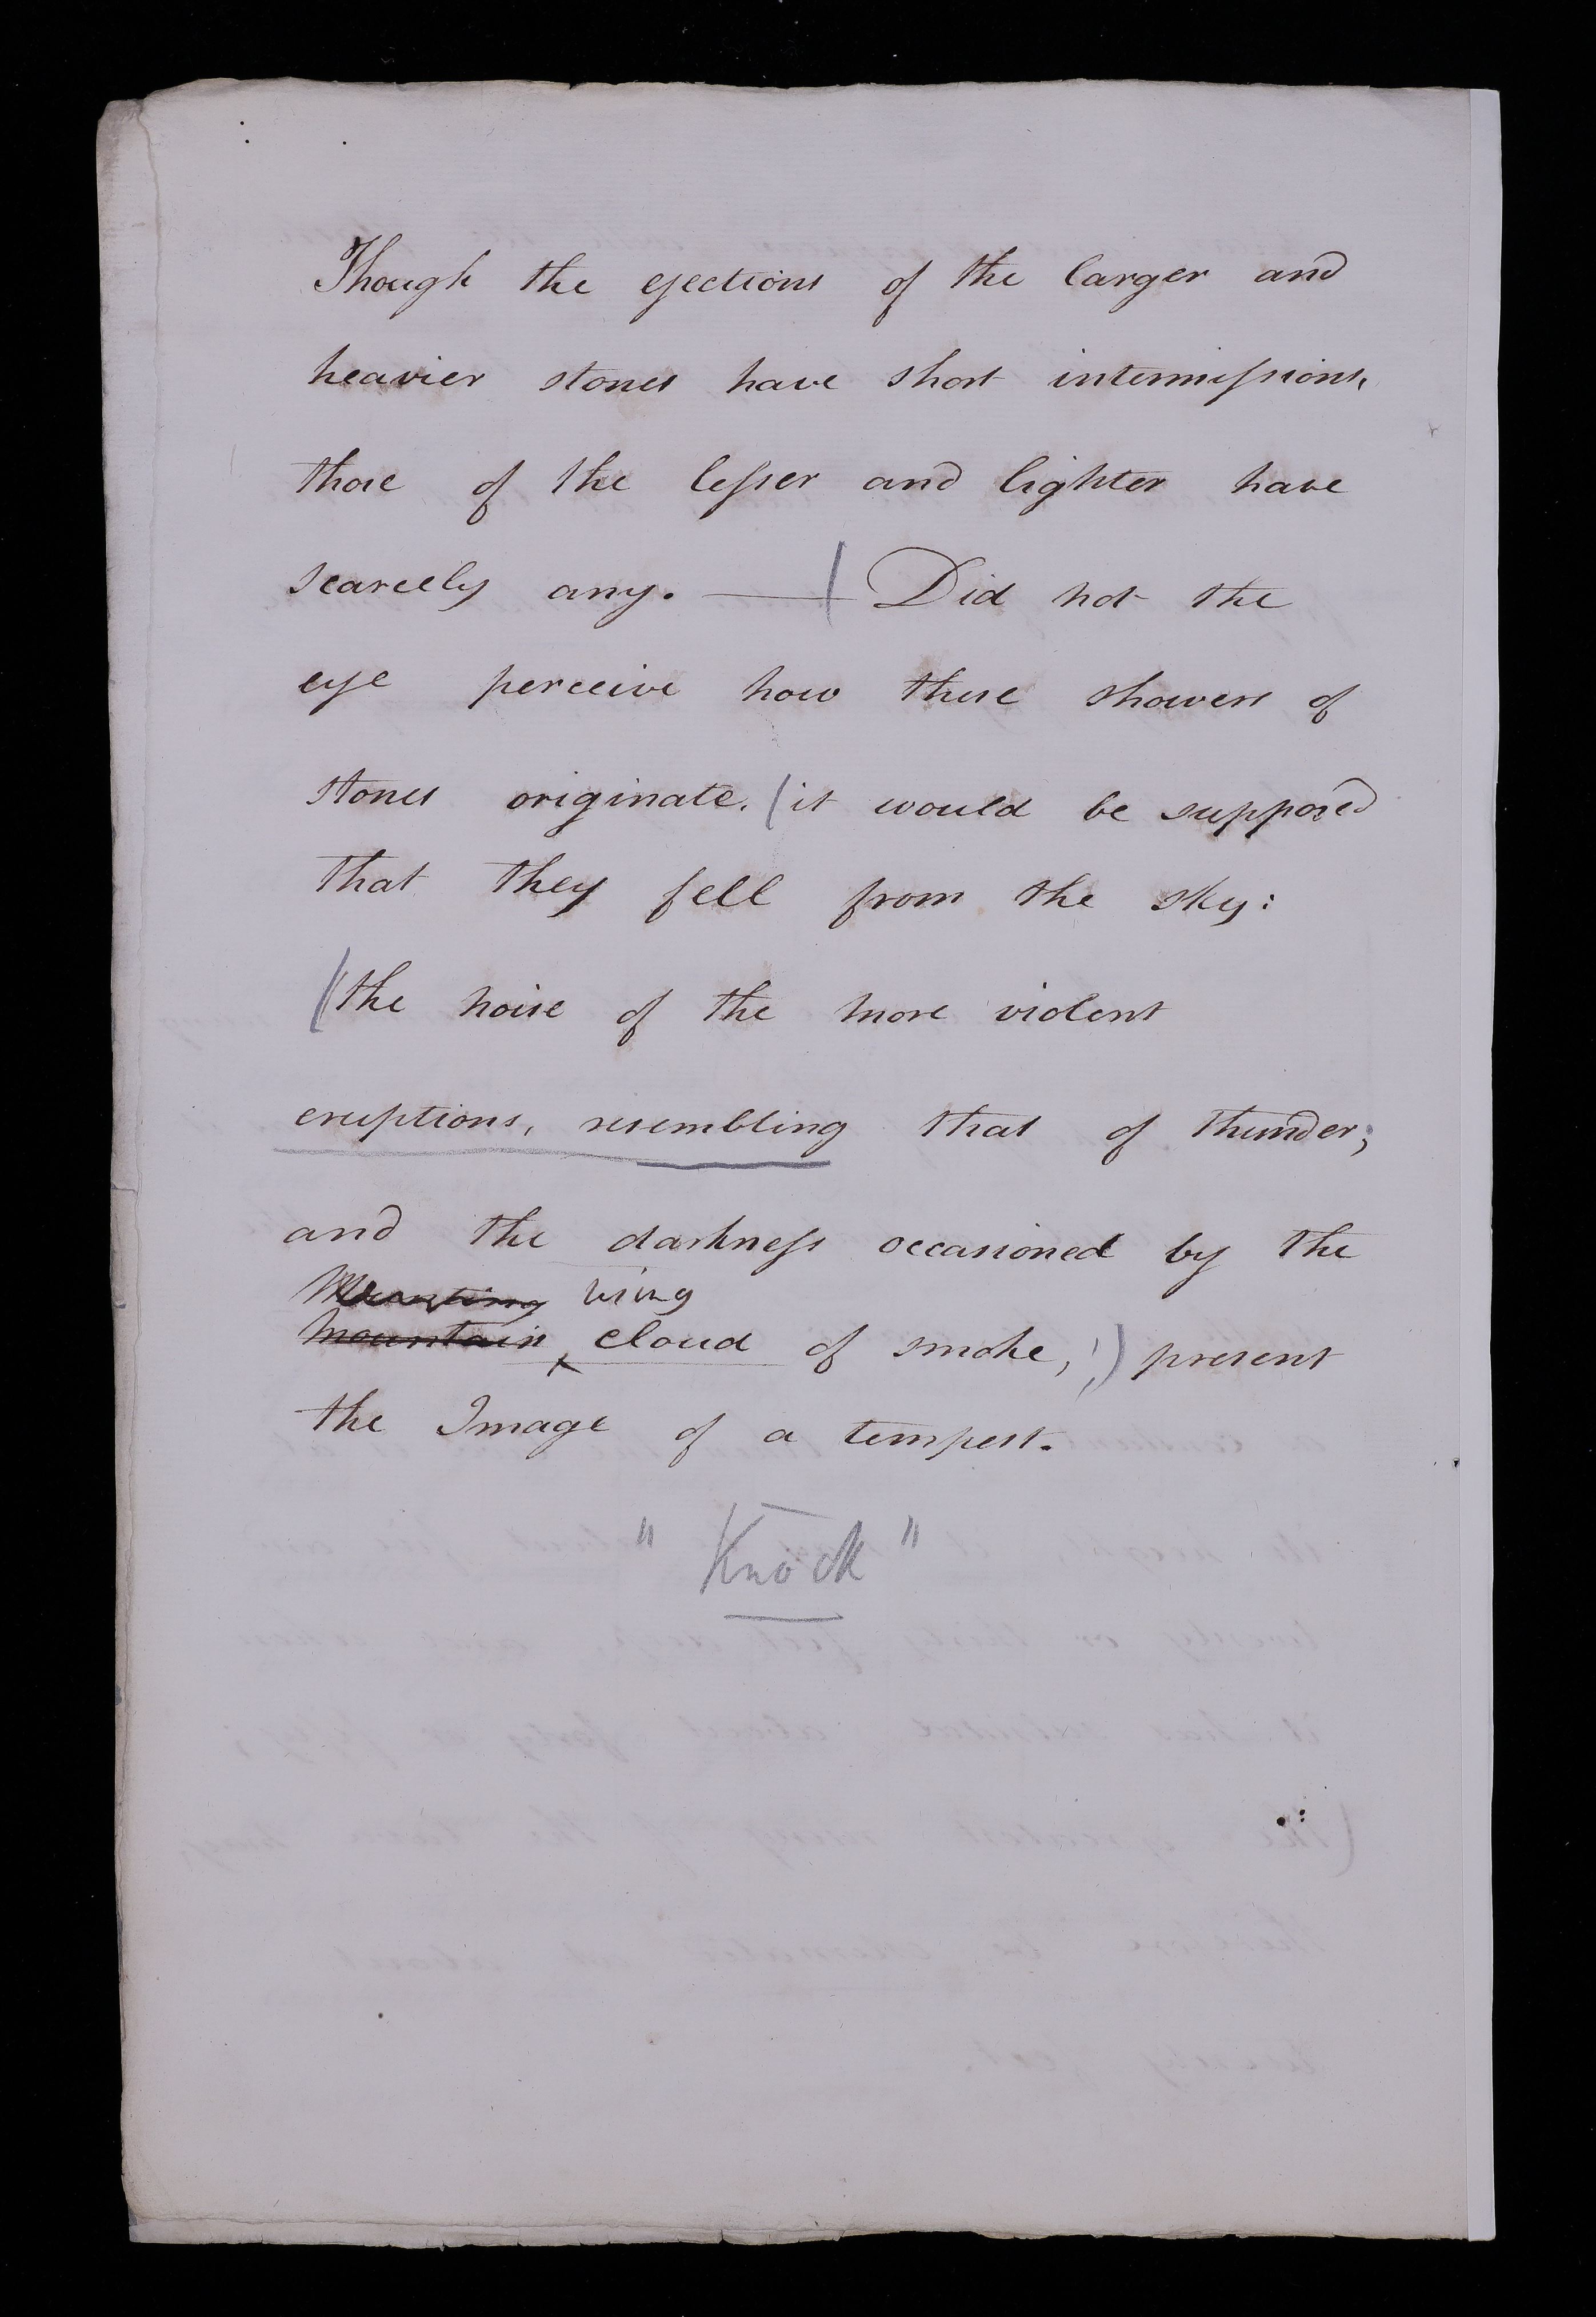 Though the ejections of the larger and
heavier stones have short intermissions,
those of the lesser and lighter have
scarcely any. — ( Did not the
eye perceive how these showers of
stones originate, (it would be supposed
that they fell from the sky:
(the noise of the more violent
eruptions, resembling that of thunder;
and the darkness occasioned by the
rising
mountain cloud of smoke, ) present
the Image of a tempest.
" Knock "